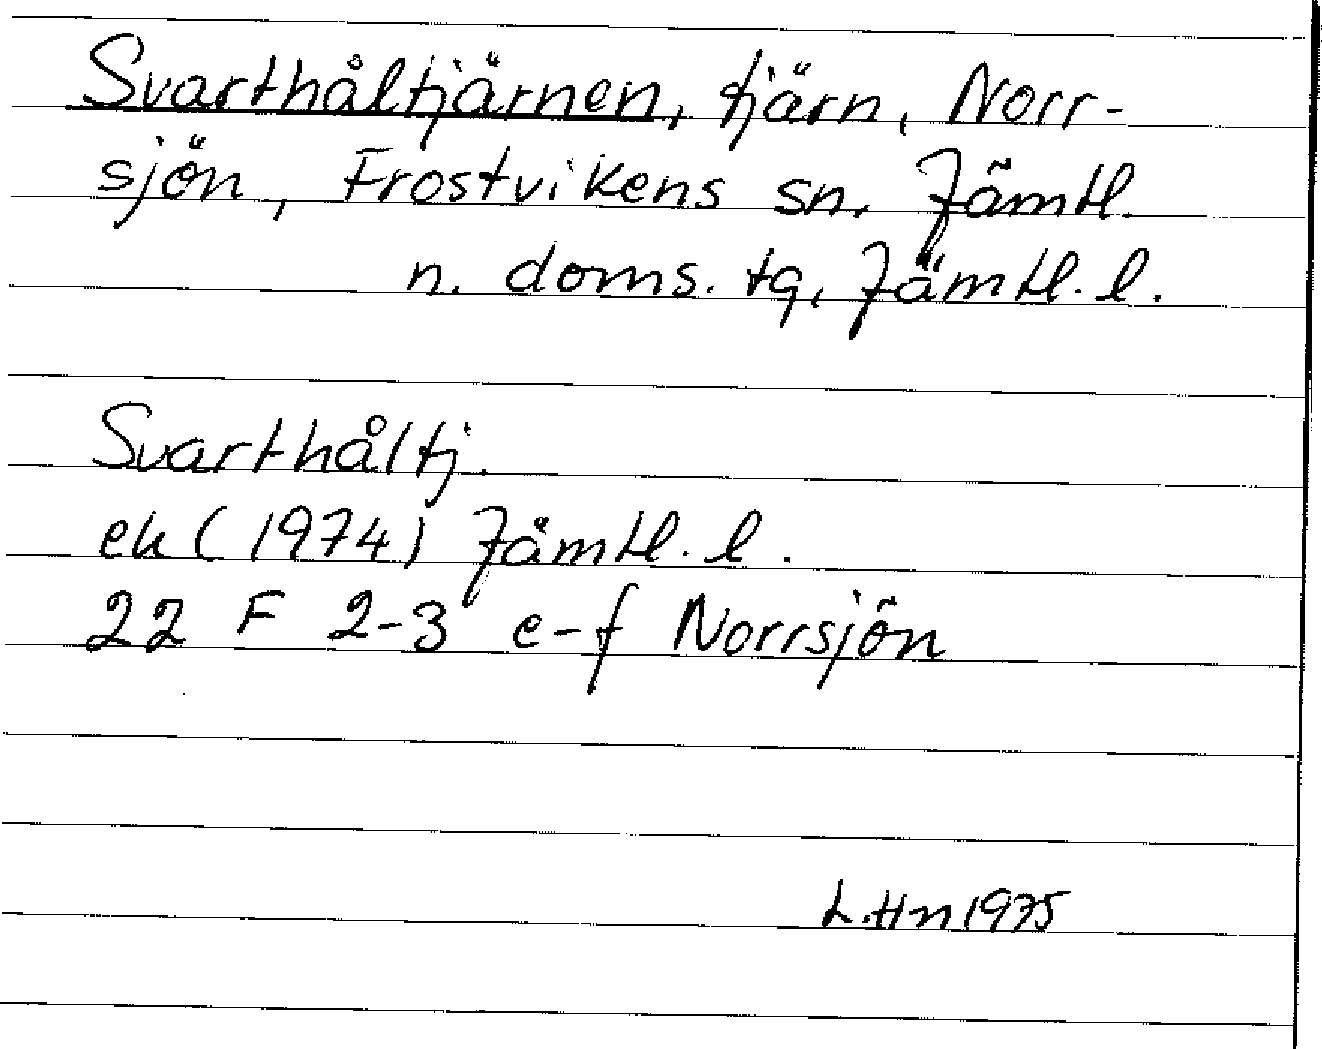 Svarthåltjärnen, tjärn, Norr-
sjön, Frostvikens sn. Jämtl.
n. doms. tg, Jämtl. l.
Svarthåltj.
ek (1974) Jämtl. l.
22 F 2-3 e-f Norrsjön
L.Hn 1975